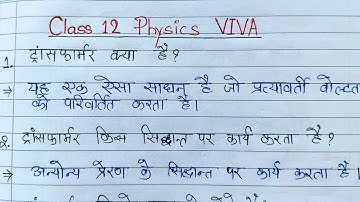 Class 12 Physics VIVA
1. ट्रांसफार्मर क्या है?
→ यह एक ऐसा साधन है जो प्रत्यावर्ती वोल्टता
को परिवर्तित करता है।
2. ट्रांसफार्मर किस सिद्धान्त पर कार्य करता है?
→ अन्योन्य प्रेरण के सिद्धान्त पर कार्य करता है।